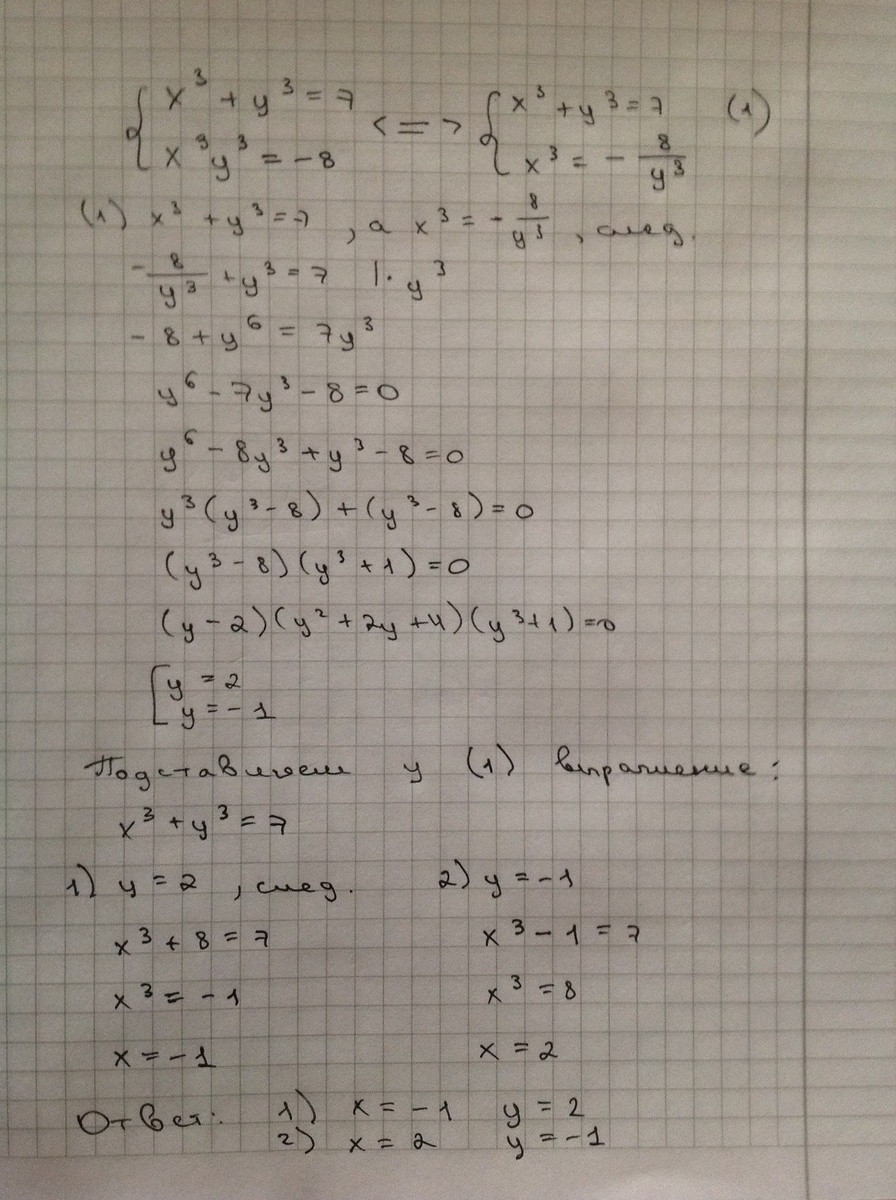 { x³ + y³ = 7 <=> { x³ + y³ = 7 (1)
{ x³y³ = -8 { x³ = - 8/y³
(1) x³ + y³ = 7, а x³ = - 8/y³, след.
- 8/y³ + y³ = 7 | · y³
- 8 + y⁶ = 7y³
y⁶ - 7y³ - 8 = 0
y⁶ - 8y³ + y³ - 8 = 0
y³(y³ - 8) + (y³ - 8) = 0
(y³ - 8)(y³ + 1) = 0
(y - 2)(y² + 2y + 4)(y³ + 1) = 0
[ y = 2
[ y = - 1
Подставляем у (1) выражение:
x³ + y³ = 7
1) y = 2, след. 2) y = - 1
x³ + 8 = 7 x³ - 1 = 7
x³ = - 1 x³ = 8
x = - 1 x = 2
Ответ: 1) x = - 1 y = 2
2) x = 2 y = - 1